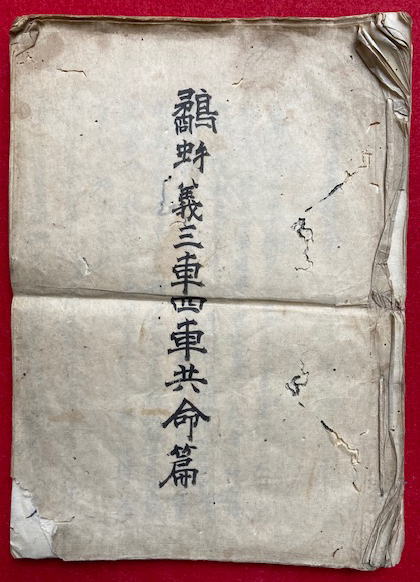 鷸蚌義三車四車共命篇